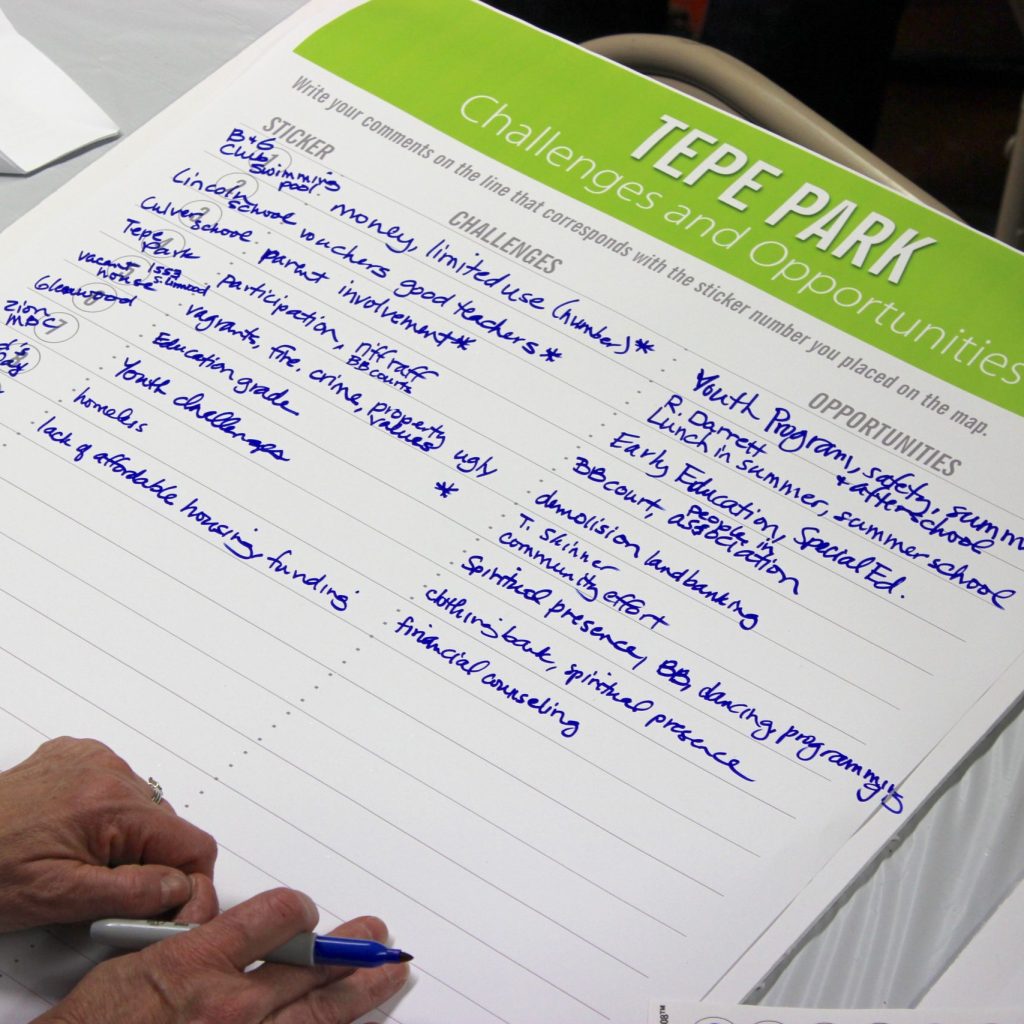 TEPE PARK
Challenges and Opportunities
Write your comments on the line that corresponds with the sticker number you placed on the map.
STICKER
CHALLENGES
OPPORTUNITIES
1
B+G Club Swimming pool
money, limited use (number) *
Youth Program, safety, summ
+ afterschool
2
Lincoln school
vouchers good teachers *
R. Darrett
Lunch in summer, summer school
3
Culver school
parent involvement *
Early Education, Special Ed.
4
Tepe Park
participation, riff raff
BB courts
BB court, people in
association
5
vacant house
vagrants, fire, crime, property values ugly
*
demolision landbanking
6
Glenwood
Education grade
T. Skinner
community effort
7
Zion MBC
Youth challenges
Spiritual presence, BB, dancing programming
8
homeless
clothing bank, spiritual presence
lack of affordable housing, funding
financial counseling